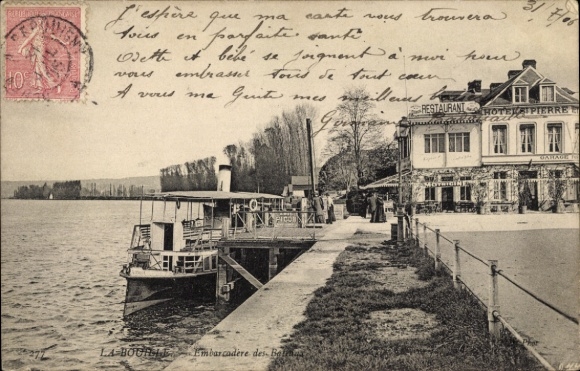 J'espère que ma carte vous trouvera
tous en parfaite santé
31/7/06
Odette et bébé se joignent à moi pour
vous embrasser tous de tout cœur
A vous ma Guite mes meilleurs
Germaine
10
RESTAURANT
HOTEL St PIERRE
GARAGE
277 LA BOUILLE - Embarcadère des Bateaux
ND Phot